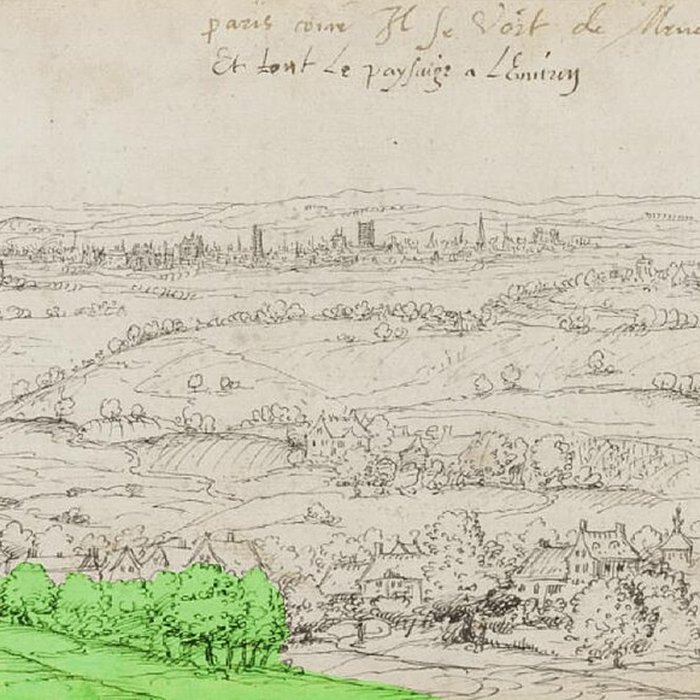 paris come Il se Voit de
Et tout Le paysaige a LEnuiron